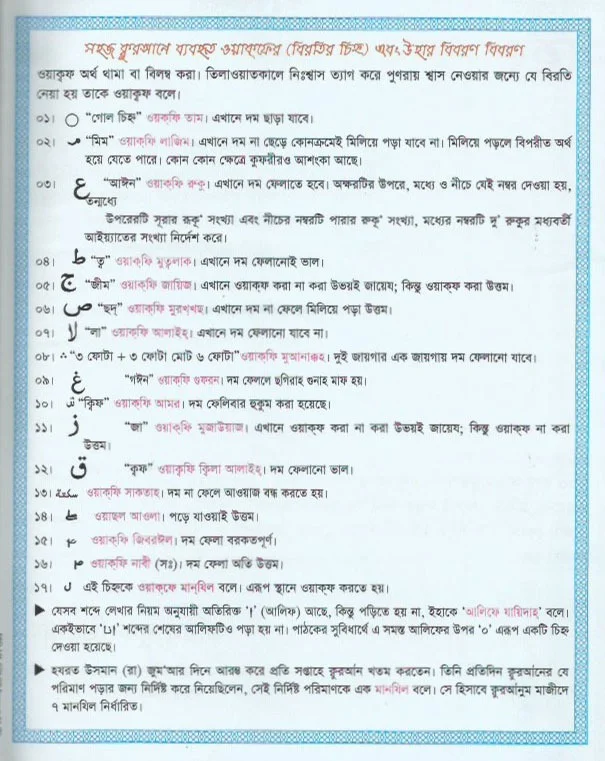 সহজ কুরআনে ব্যবহৃত ওয়াকফের (বিরতির চিহ্ন) এবং উহার বিবরণ বিবরণ
ওয়াকৃফ অর্থ থামা বা বিলম্ব করা। তিলাওয়াতকালে নিঃশ্বাস ত্যাগ করে পুণরায় শ্বাস নেওয়ার জন্যে যে বিরতি
নেয়া হয় তাকে ওয়াকৃফ বলে।
০১। ○ “গোল চিহ্ন” ওয়াক্‌ফি তাম। এখানে দম ছাড়া যাবে।
০২। م “মিম” ওয়াক্‌ফি লাজিম। এখানে দম না ছেড়ে কোনক্রমেই মিলিয়ে পড়া যাবে না। মিলিয়ে পড়লে বিপরীত অর্থ
হয়ে যেতে পারে। কোন কোন ক্ষেত্রে কুফরীরও আশংকা আছে।
০৩। ع “আঈন” ওয়াক্‌ফি রুকু। এখানে দম ফেলাতে হবে। অক্ষরটির উপরে, মধ্যে ও নীচে যেই নম্বর দেওয়া হয়,
তন্মধ্যে
উপরেরটি সূরার রূকূ' সংখ্যা এবং নীচের নম্বরটি পারার রুকূ' সংখ্যা, মধ্যের নম্বরটি দু' রুকুর মধ্যবর্তী
আইয়্যাতের সংখ্যা নির্দেশ করে।
০৪। ط “ত্ব” ওয়াক্‌ফি মুত্বলাক। এখানে দম ফেলানোই ভাল।
০৫। ج “জীম” ওয়াক্‌ফি জায়িজ। এখানে ওয়াক্‌ফ করা না করা উভয়ই জায়েয; কিন্তু ওয়াক্‌ফ করা উত্তম।
০৬। ص “ছদ্” ওয়াক্‌ফি মুরখ্খছ। এখানে দম না ফেলে মিলিয়ে পড়া উত্তম।
০৭। لا “লা” ওয়াক্‌ফি আলাইহ। এখানে দম ফেলানো যাবে না।
০৮। ∴ “৩ ফোটা + ৩ ফোটা মোট ৬ ফোটা” ওয়াক্‌ফি মুআনাক্কহ। দুই জায়গার এক জায়গায় দম ফেলানো যাবে।
০৯। غ “গঈন” ওয়াক্‌ফি গুফরন। দম ফেললে ছগিরাহ গুনাহ মাফ হয়।
১০। “ক্বিফ” ওয়াক্‌ফি আমর। দম ফেলিবার হুকুম করা হয়েছে।
১১। ز “জা” ওয়াক্‌ফি মুজাউয়াজ। এখানে ওয়াক্‌ফ করা না করা উভয়ই জায়েয; কিন্তু ওয়াক্‌ফ না করা
উত্তম।
১২। ق “ক্বফ” ওয়াক্‌ফি ক্বিলা আলাইহ। দম ফেলানো ভাল।
১৩। سكتة ওয়াক্‌ফি সাকতাহ। দম না ফেলে আওয়াজ বন্ধ করতে হয়।
১৪। ওয়াছল আওলা। পড়ে যাওয়াই উত্তম।
১৫। ওয়াক্‌ফি জিবরঈল। দম ফেলা বরকতপূর্ণ।
১৬। ওয়াক্‌ফি নাবী (সঃ)। দম ফেলা অতি উত্তম।
১৭। ل এই চিহ্নকে ওয়াক্‌ফে মান্‌যিল বলে। এরূপ স্থানে ওয়াক্‌ফ করতে হয়।
▶ যেসব শব্দে লেখার নিয়ম অনুযায়ী অতিরিক্ত ‘ا’ (আলিফ) আছে, কিন্তু পড়িতে হয় না, ইহাকে ‘আলিফে যায়িদাহ’ বলে।
একইভাবে ‘انا’ শব্দের শেষের আলিফটিও পড়া হয় না। পাঠকের সুবিধার্থে এ সমস্ত আলিফের উপর ‘০’ এরূপ একটি চিহ্ন
দেওয়া হয়েছে।
▶ হযরত উসমান (রা) জুম‘আর দিনে আরম্ভ করে প্রতি সপ্তাহে কুরআন খতম করতেন। তিনি প্রতিদিন কুরআনের যে
পরিমাণ পড়ার জন্য নির্দিষ্ট করে নিয়েছিলেন, সেই নির্দিষ্ট পরিমাণকে এক মানযিল বলে। সে হিসাবে কুরআনুম মাজীদে
৭ মানযিল নির্ধারিত।